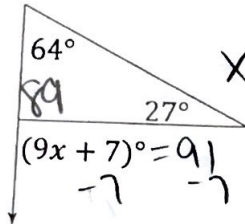 64°
X
89
27°
(9x + 7)° = 91
-7 -7